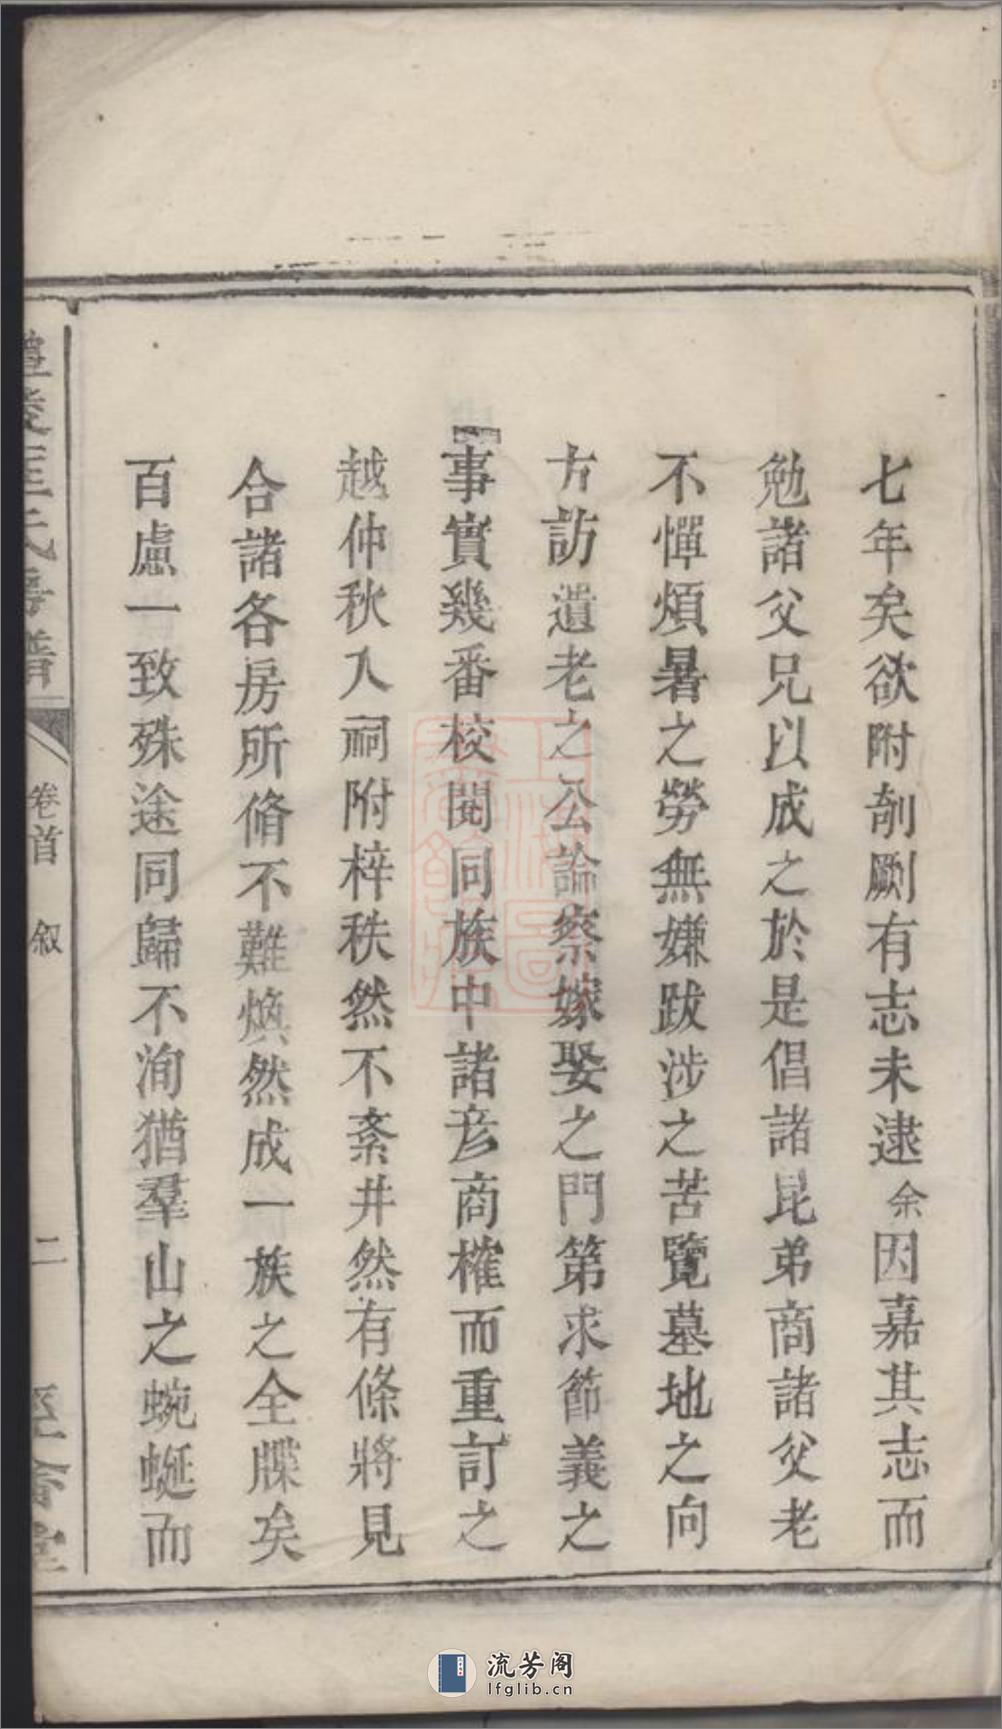 七年矣欲附剞劂有志未逮余因嘉其志而
勉諸父兄以成之於是倡諸昆弟商諸父老
不憚煩暑之勞無嫌跋涉之苦覽墓地之向
方訪遺老之公論察嫁娶之門第求節義之
事實幾番校閱同族中諸彥商榷而重訂之
越仲秋入祠附梓秩然不紊井然有條將見
合諸各房所脩不難煥然成一族之全牒矣
百慮一致殊途同歸不洵猶羣山之蜿蜒而
醴陵匡氏房譜
卷首
叙
二
上海圖
流芳阁
lfglib.cn